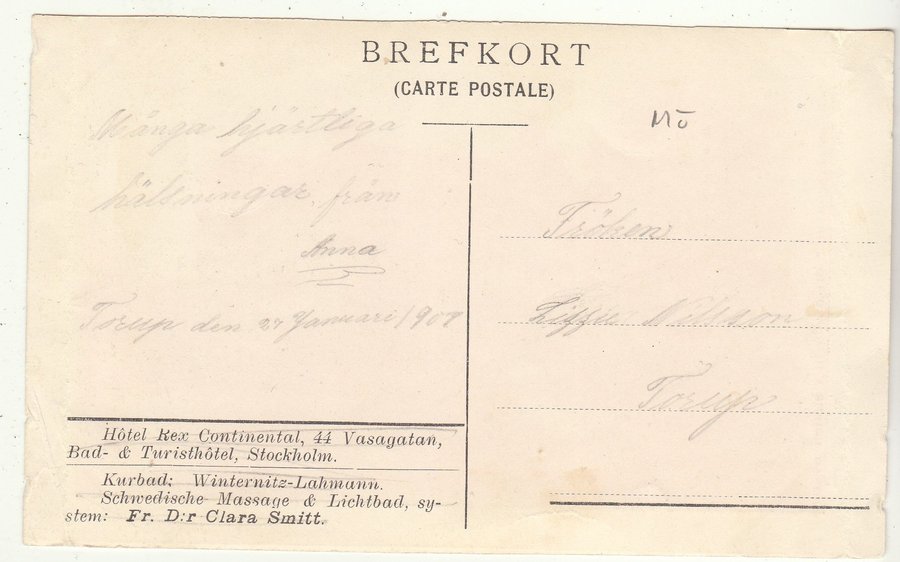 BREFKORT
(CARTE POSTALE)
Många hjärtliga
hälsningar från
Anna
Torup den 27 Januari 1908
Mö
Fröken
Lizzie Nillson
Torup
Hôtel Rex Continental, 44 Vasagatan,
Bad- & Turisthôtel, Stockholm.
Kurbad: Winternitz-Lahmann.
Schwedische Massage & Lichtbad, sy-
stem: Fr. D:r Clara Smitt.